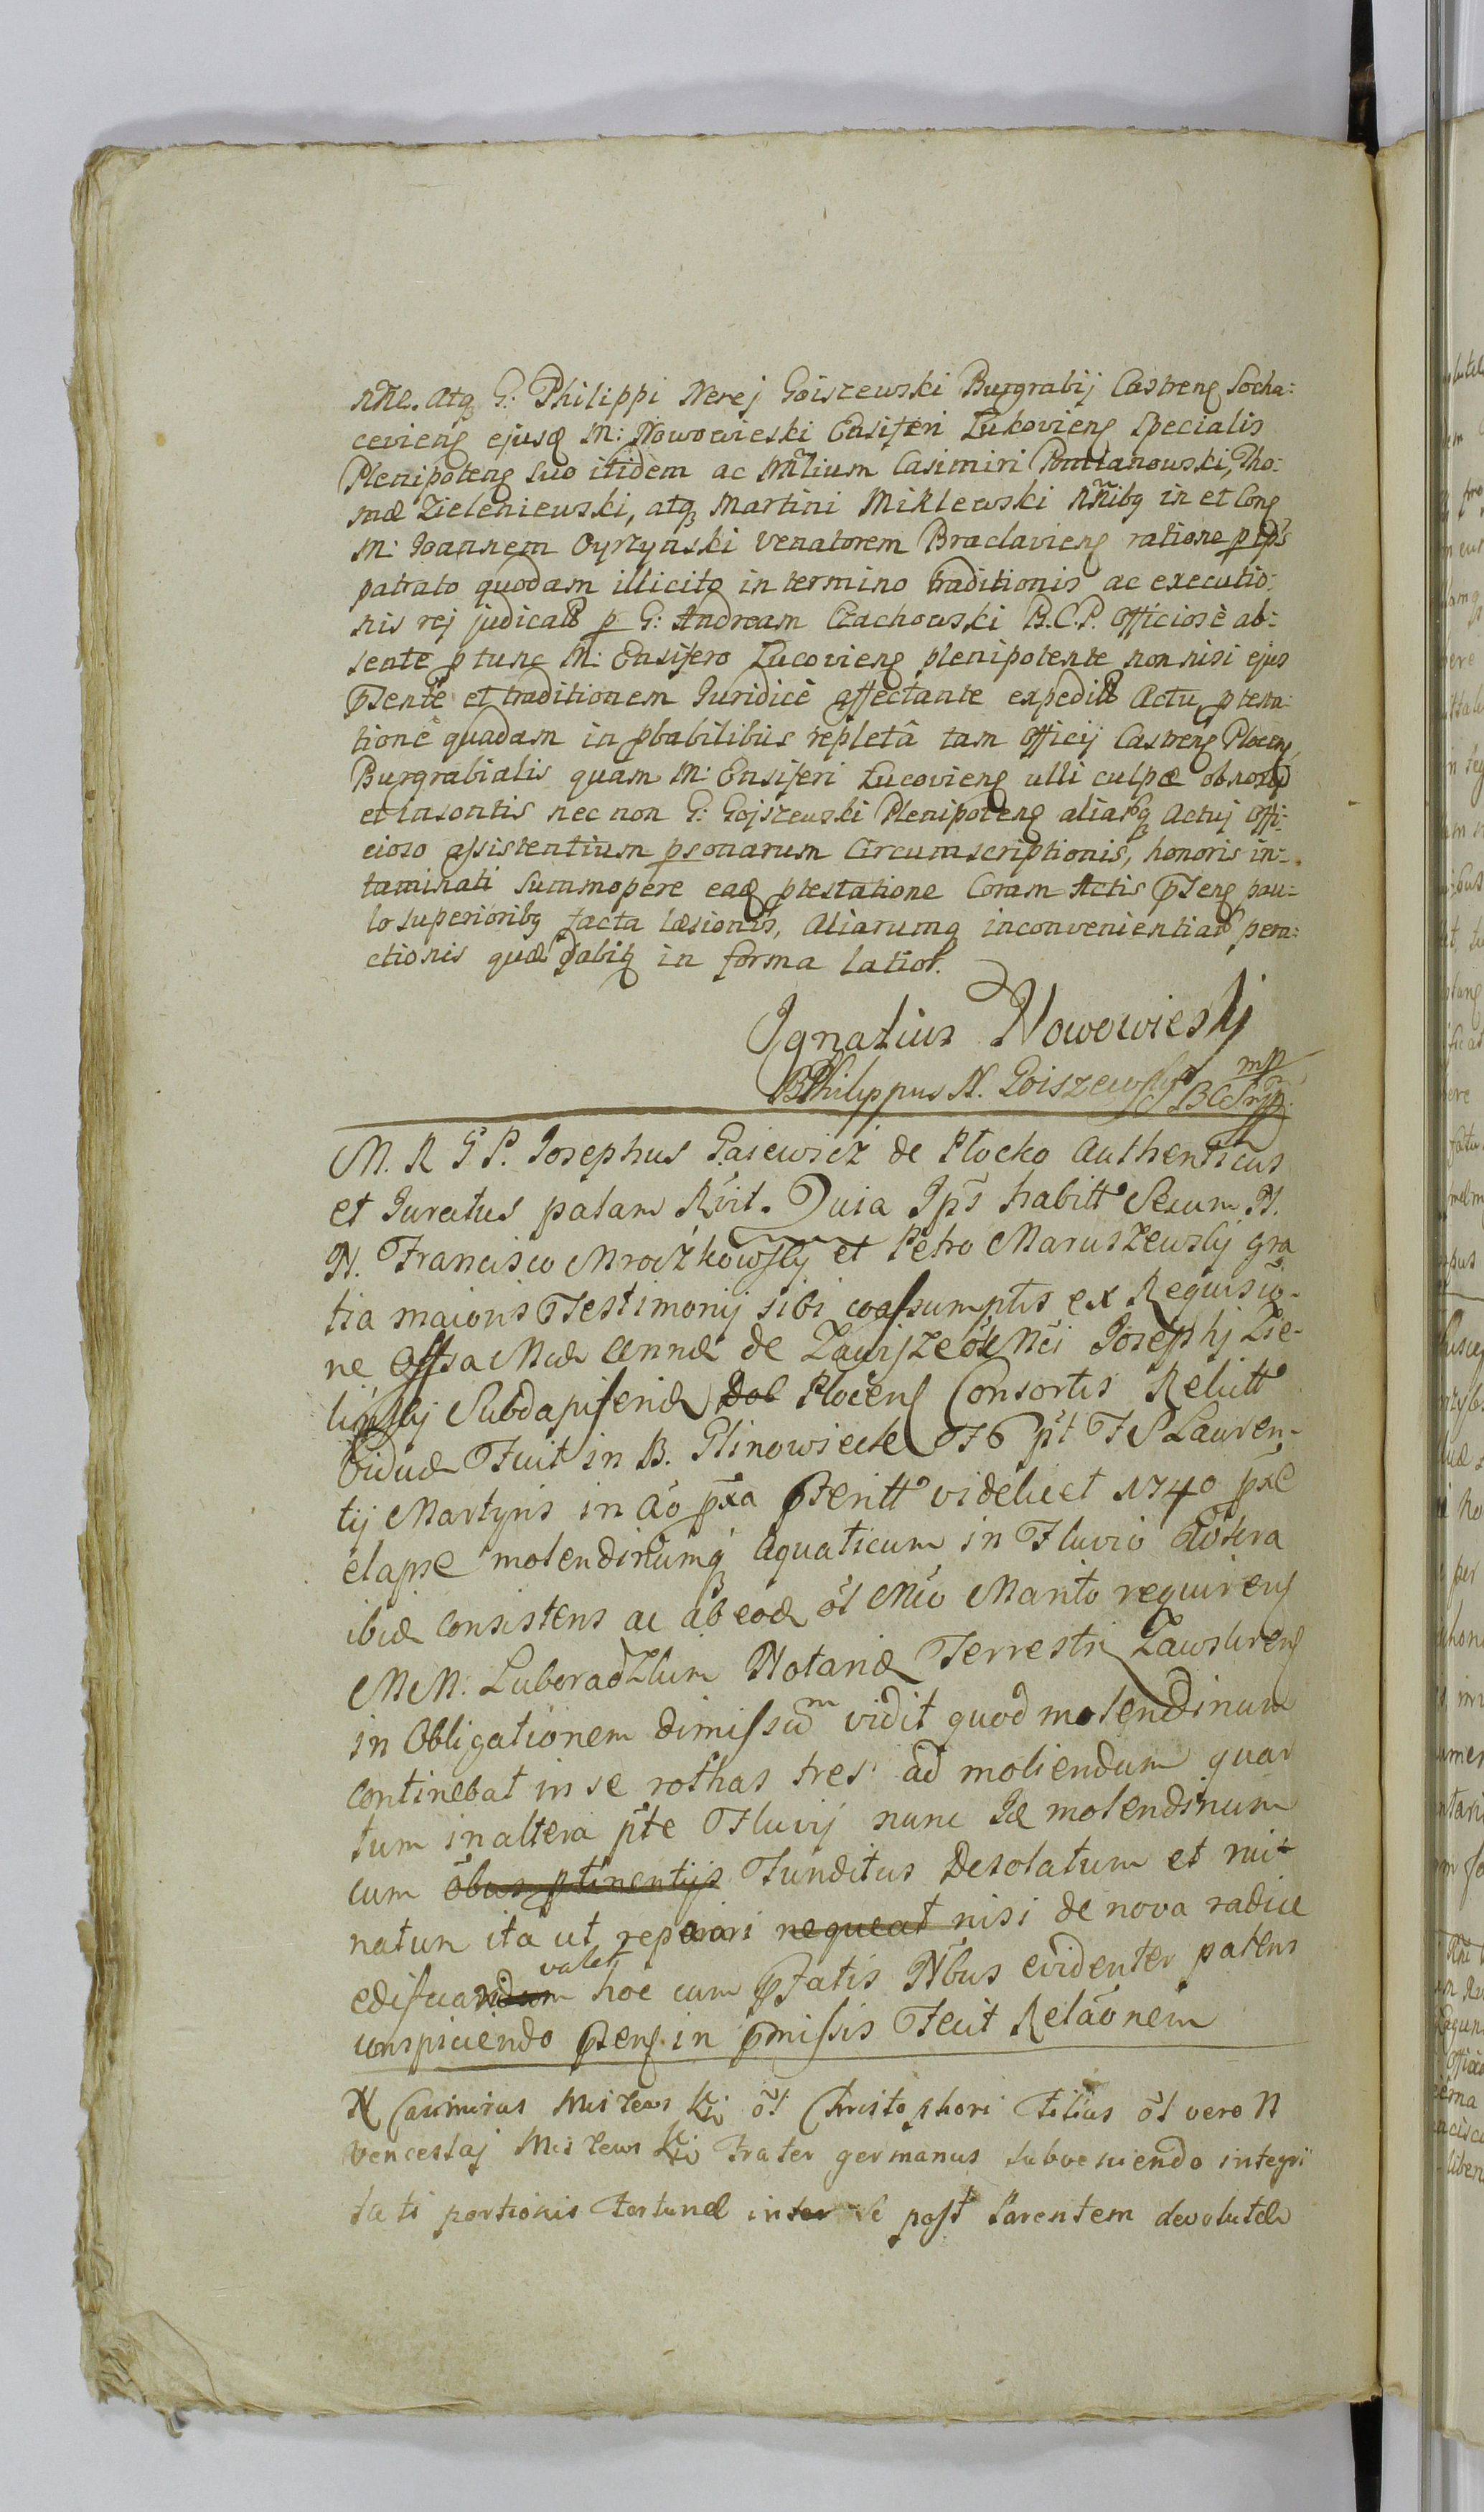 nñe. atq G: Philippi Nerej Goiszewski Burgrabij Castreng Socha:
cevieng ejusq M: Nowowieski Ensiferi Lukovieng Specialis
Plenipoteng suo itidem ac Mñlium Casimiri Pomianowski, Tho:
mæ Zieleniewski, atq Martini Miklewski Nñibq in et Cong
M: Joannem Oyrzynski Venatorem Braclavieng ratione p ips
patrato quodam illicito in termino traditionis ac executio:
nis rej judicat p G: Andream Czachowski B.C.P. officiosè ab:
sente p tunc M: Ensifero Lucovieng plenipotente non nisi ejus
pſente et traditionem Juridicè affectante expedit Actu, ptesta:
tionè quadam in pbabilibus repletâ tam officij Castreng Ploceng
Burgrabialis quam M: Ensiferi Lucovieng ulli culpæ obnoxij
et insontis nec non G: Gojszewski Plenipoteng aliarq Actuj offi:
cioso assistentium psonarum Circumscriptionis, honoris in:
taminati summopere eadq ptestatione Coram Actis pſeng pau:
lo superioribq facta læsionis, Aliarumq inconvenientiar pera:
ctionis quæ dabitq in forma latior.
Ignatius Nowowieskj
Philippus N. Goiszewski mp
M. R G P. Josephus Gaiewicz de Plocko Authenticus
et Juratus palam Rvit. Quia Ips habitt Secum N.
N. Francisco Mroczkowskij et Petro Maruszewskij gra
tia maioris Testimonij sibi coassumptis ex Requisio-
ne Mcæ Annæ de ol Mci Josephj Zie-
linskij Subdapiferid Dob Ploceng Consortis Relictt
Viduæ Fuit in B. Glinowiecke F6 pt FS Lauren-
tij Martyris in Ao pxa pteritt videlicet 1740 pxe
elapse molendinumq aquaticum in Fluvio
ibid consistens ac ab eod ol Mco Marito requireng
MM: Luboradzkim Notarid Terrestri Zawskreng
in Obligationem dimissum vidit quod molendinum
continebat in se rothas tres ad moliendum quar
tum in altera pte Fluvij nunc Id molendinum
cum obus ptinentijs Funditus Desolatum et rui-
natum ita ut reparari nequeat nisi de nova radice
valet
edificari hoc cum pfatis Nbus evidenter patens
conspiciendo pſeng in pmissis Fecit Relaonem
N Casimirus Miszewski ol Christophori Filius ol vero N
Venceslaj Miszewski frater germanus subveniendo integri
tati portionis fortunæ inter se post Parentem devolutæ